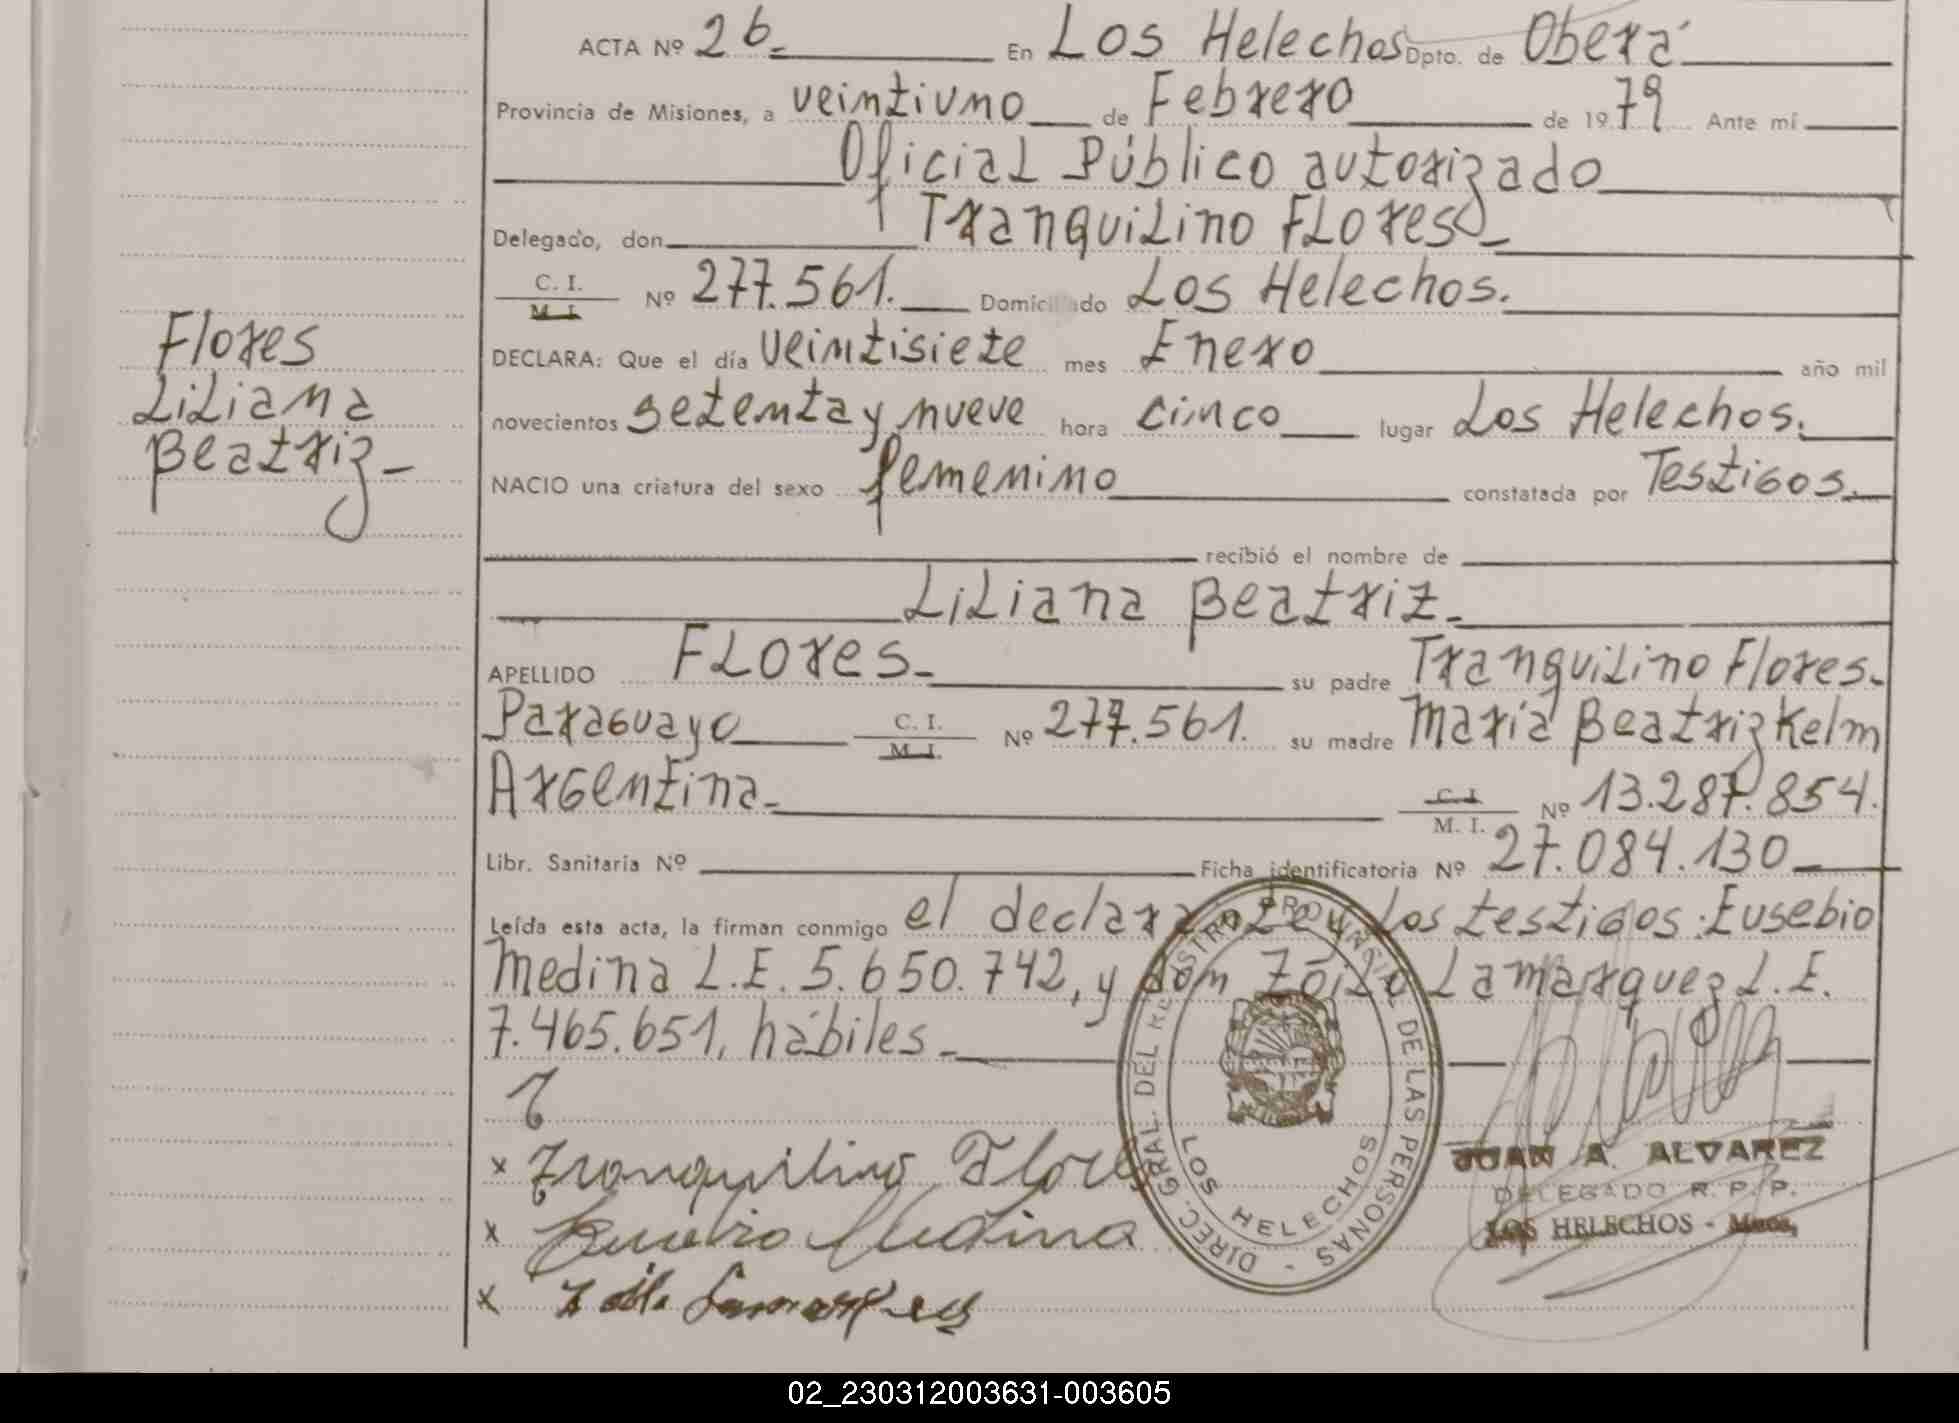 ACTA Nº 26 En Los Helechos Dpto. de Oberá
Provincia de Misiones, a veintiuno de Febrero de 1979 Ante mí
Oficial Público autorizado
Delegado, don Tranquilino Flores
C. I.
M. I. Nº 277.561. Domiciliado Los Helechos.
DECLARA: Que el día veintisiete mes Enero año mil
novecientos setenta y nueve hora cinco lugar Los Helechos.
NACIO una criatura del sexo femenino constatada por Testigos.
recibió el nombre de
Liliana Beatriz
APELLIDO Flores su padre Tranquilino Flores
Paraguayo C. I.
M. I. Nº 277.561. su madre María Beatriz Kelm
Argentina C. I.
M. I. Nº 13.287.854.
Libr. Sanitaria Nº Ficha identificatoria Nº 27.084.130
Leída esta acta, la firman conmigo el declarante y los testigos: Eusebio
Medina L.E. 5.650.742, y don Zóilo Lamarquez L.E.
7.465.651, hábiles
Flores
Liliana
Beatriz
Tranquilino Flores
Eusebio Medina
DIREC. GRAL. DEL REGISTRO PROVINCIAL DE LAS PERSONAS
LOS HELECHOS
JUAN A. ALVAREZ
DELEGADO R. P. P.
LOS HELECHOS - Mnes,
02_230312003631-003605